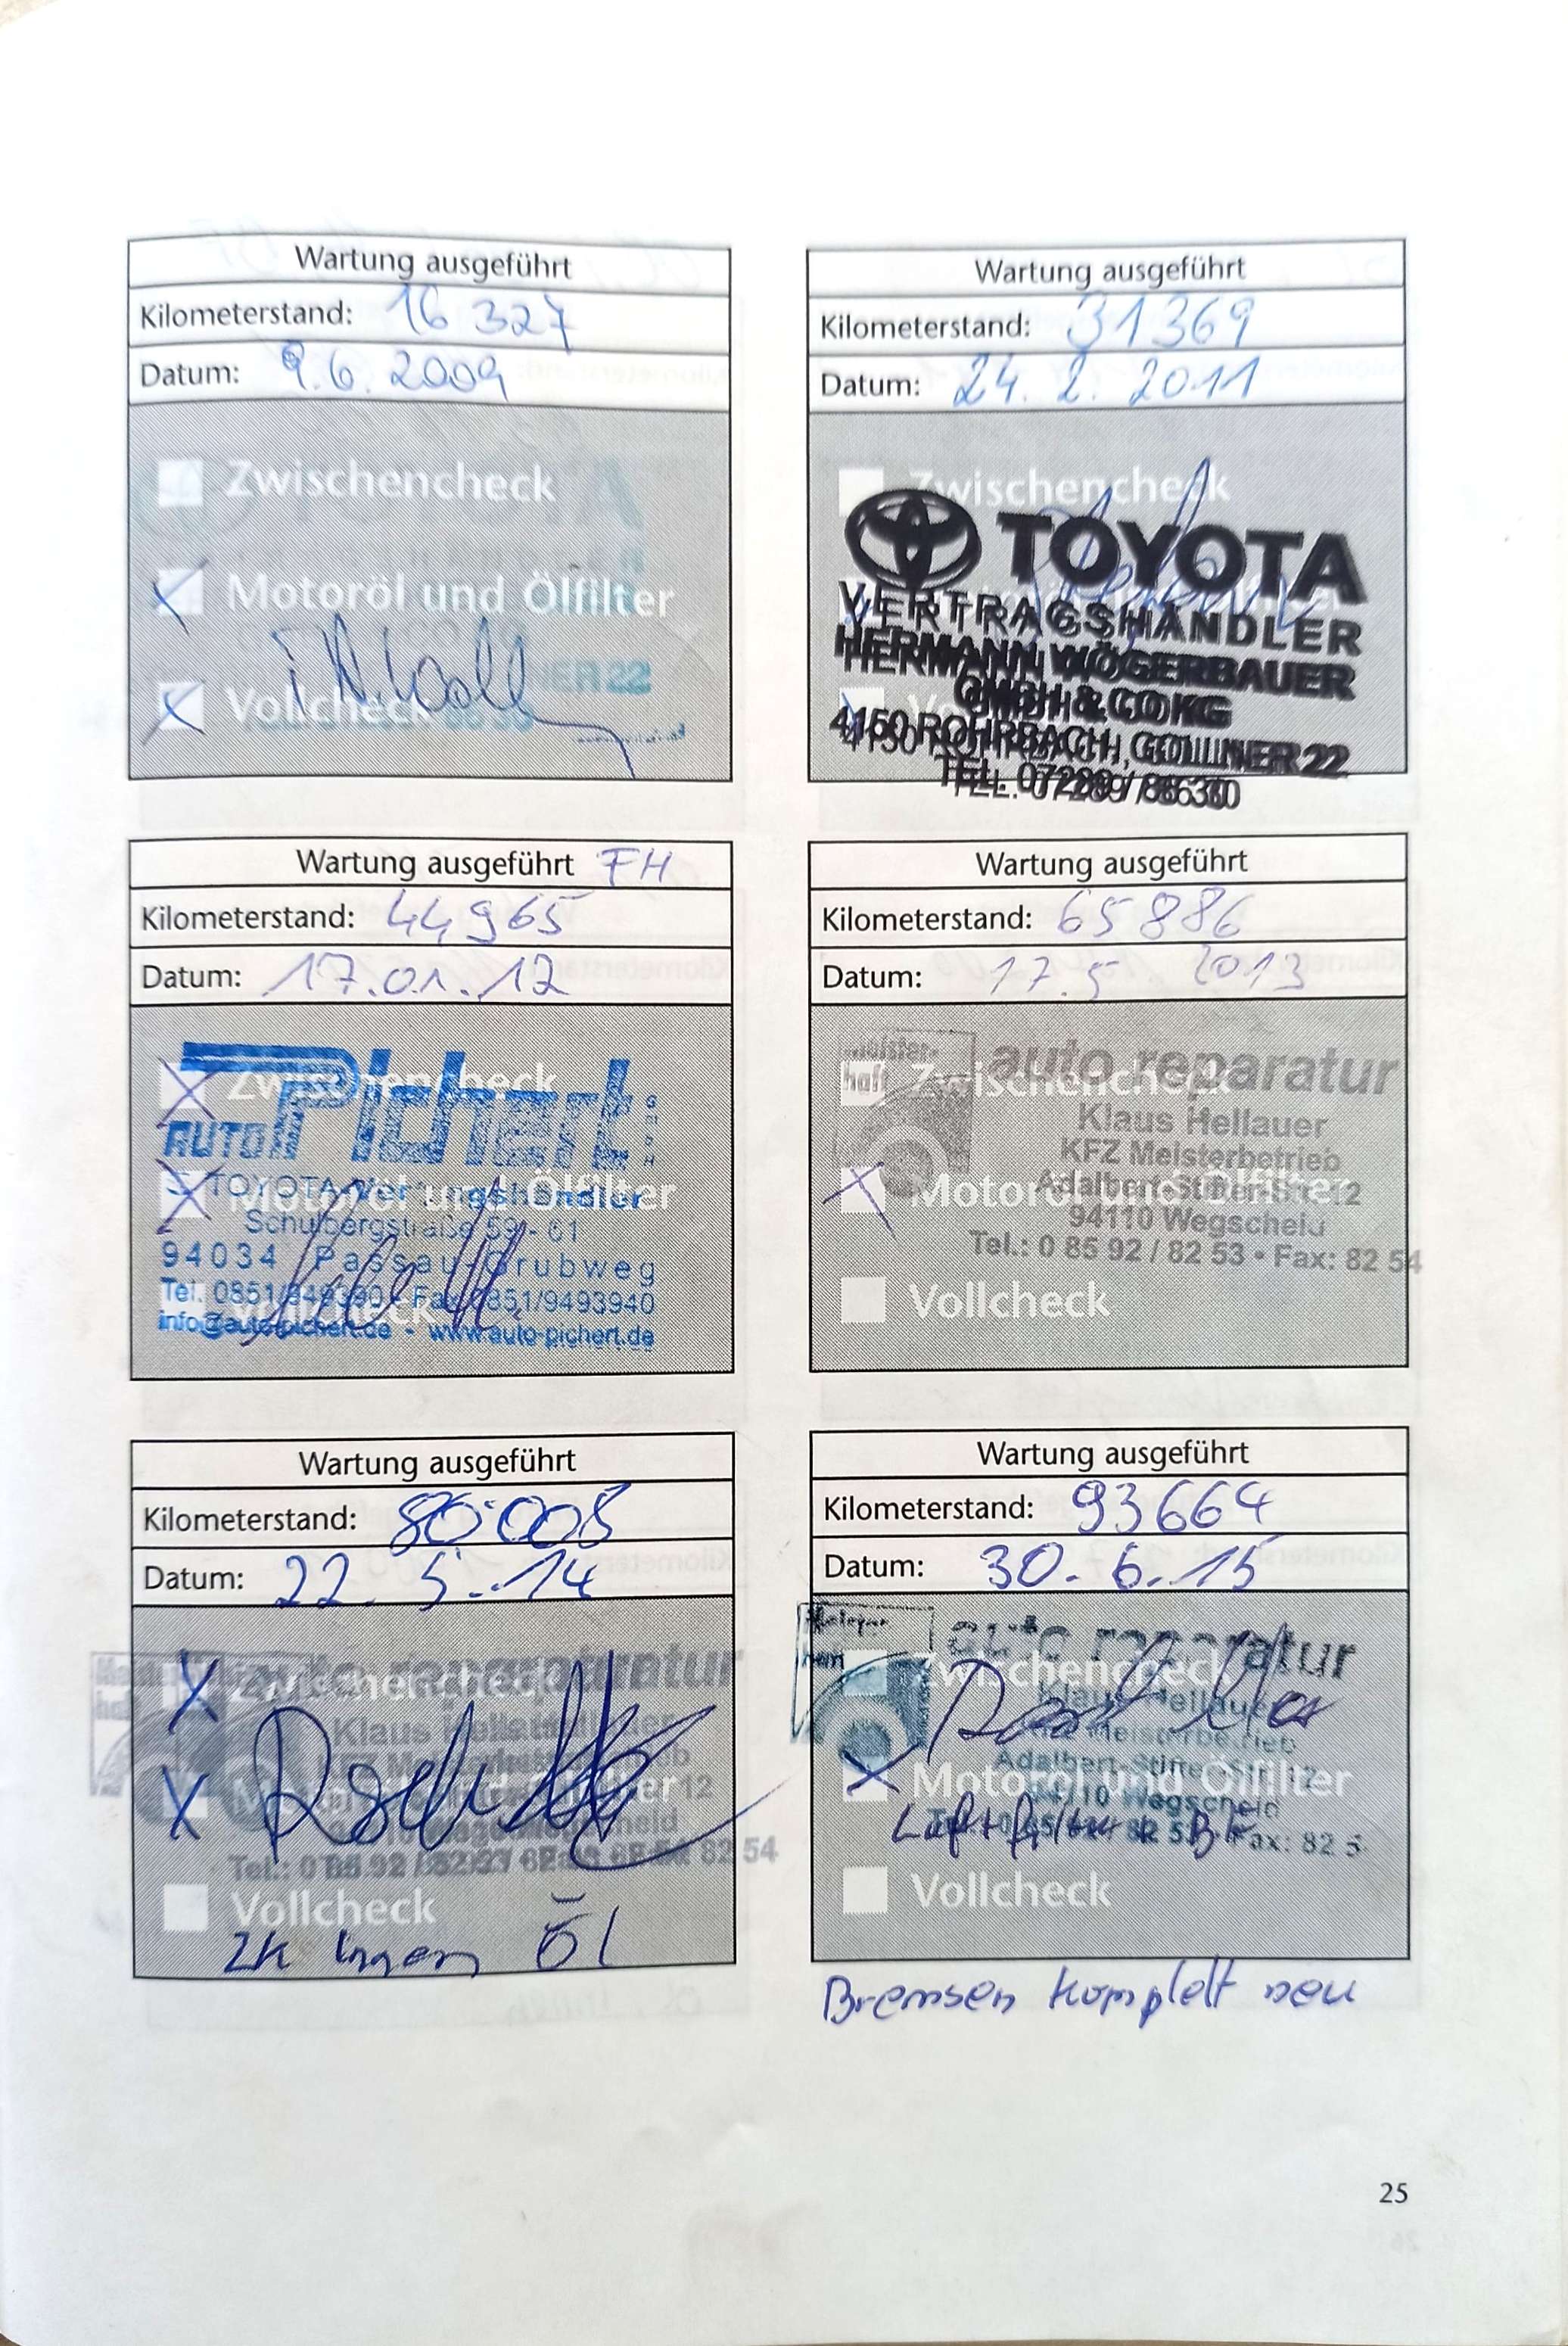 Wartung ausgeführt
Kilometerstand: 16 327
Datum: 9.6.2009
Zwischencheck
Motoröl und Ölfilter
Vollcheck
Wartung ausgeführt
Kilometerstand: 31369
Datum: 24.2.2011
Zwischencheck
TOYOTA
VERTRAGSHÄNDLER
HERMANN WÖGERBAUER
GMBH & CO KG
4150 ROHRBACH, GOLLNER 22
TEL. 07289 / 8630
Wartung ausgeführt FH
Kilometerstand: 44965
Datum: 17.01.12
Zwischencheck
AUTO Pichert GMBH
TOYOTA-Vertragshändler
Motoröl und Ölfilter
Schulbergstraße 59 - 61
94034 Passau-Grubweg
Tel. 0851/949390 • Fax 0851/9493940
Vollcheck
info@auto-pichert.de - www.auto-pichert.de
Wartung ausgeführt
Kilometerstand: 65886
Datum: 17.5 2013
auto reparatur
Zwischencheck
Klaus Hellauer
KFZ Meisterbetrieb
Adalbert-Stifter-Str. 12
Motoröl und Ölfilter
94110 Wegscheid
Tel.: 0 85 92 / 82 53 • Fax: 82 54
Vollcheck
Wartung ausgeführt
Kilometerstand: 80.008
Datum: 22. 5. 14
auto reparatur
Zwischencheck
Klaus Hellauer
Motoröl und Ölfilter
Vollcheck
Öl
Wartung ausgeführt
Kilometerstand: 93664
Datum: 30. 6. 15
auto reparatur
Zwischencheck
Klaus Hellauer
Meisterbetrieb
Adalbert-Stifter-Str. 12
Motoröl und Ölfilter
94110 Wegscheid
Luftfilter + BF
Vollcheck
Bremsen komplett neu
25